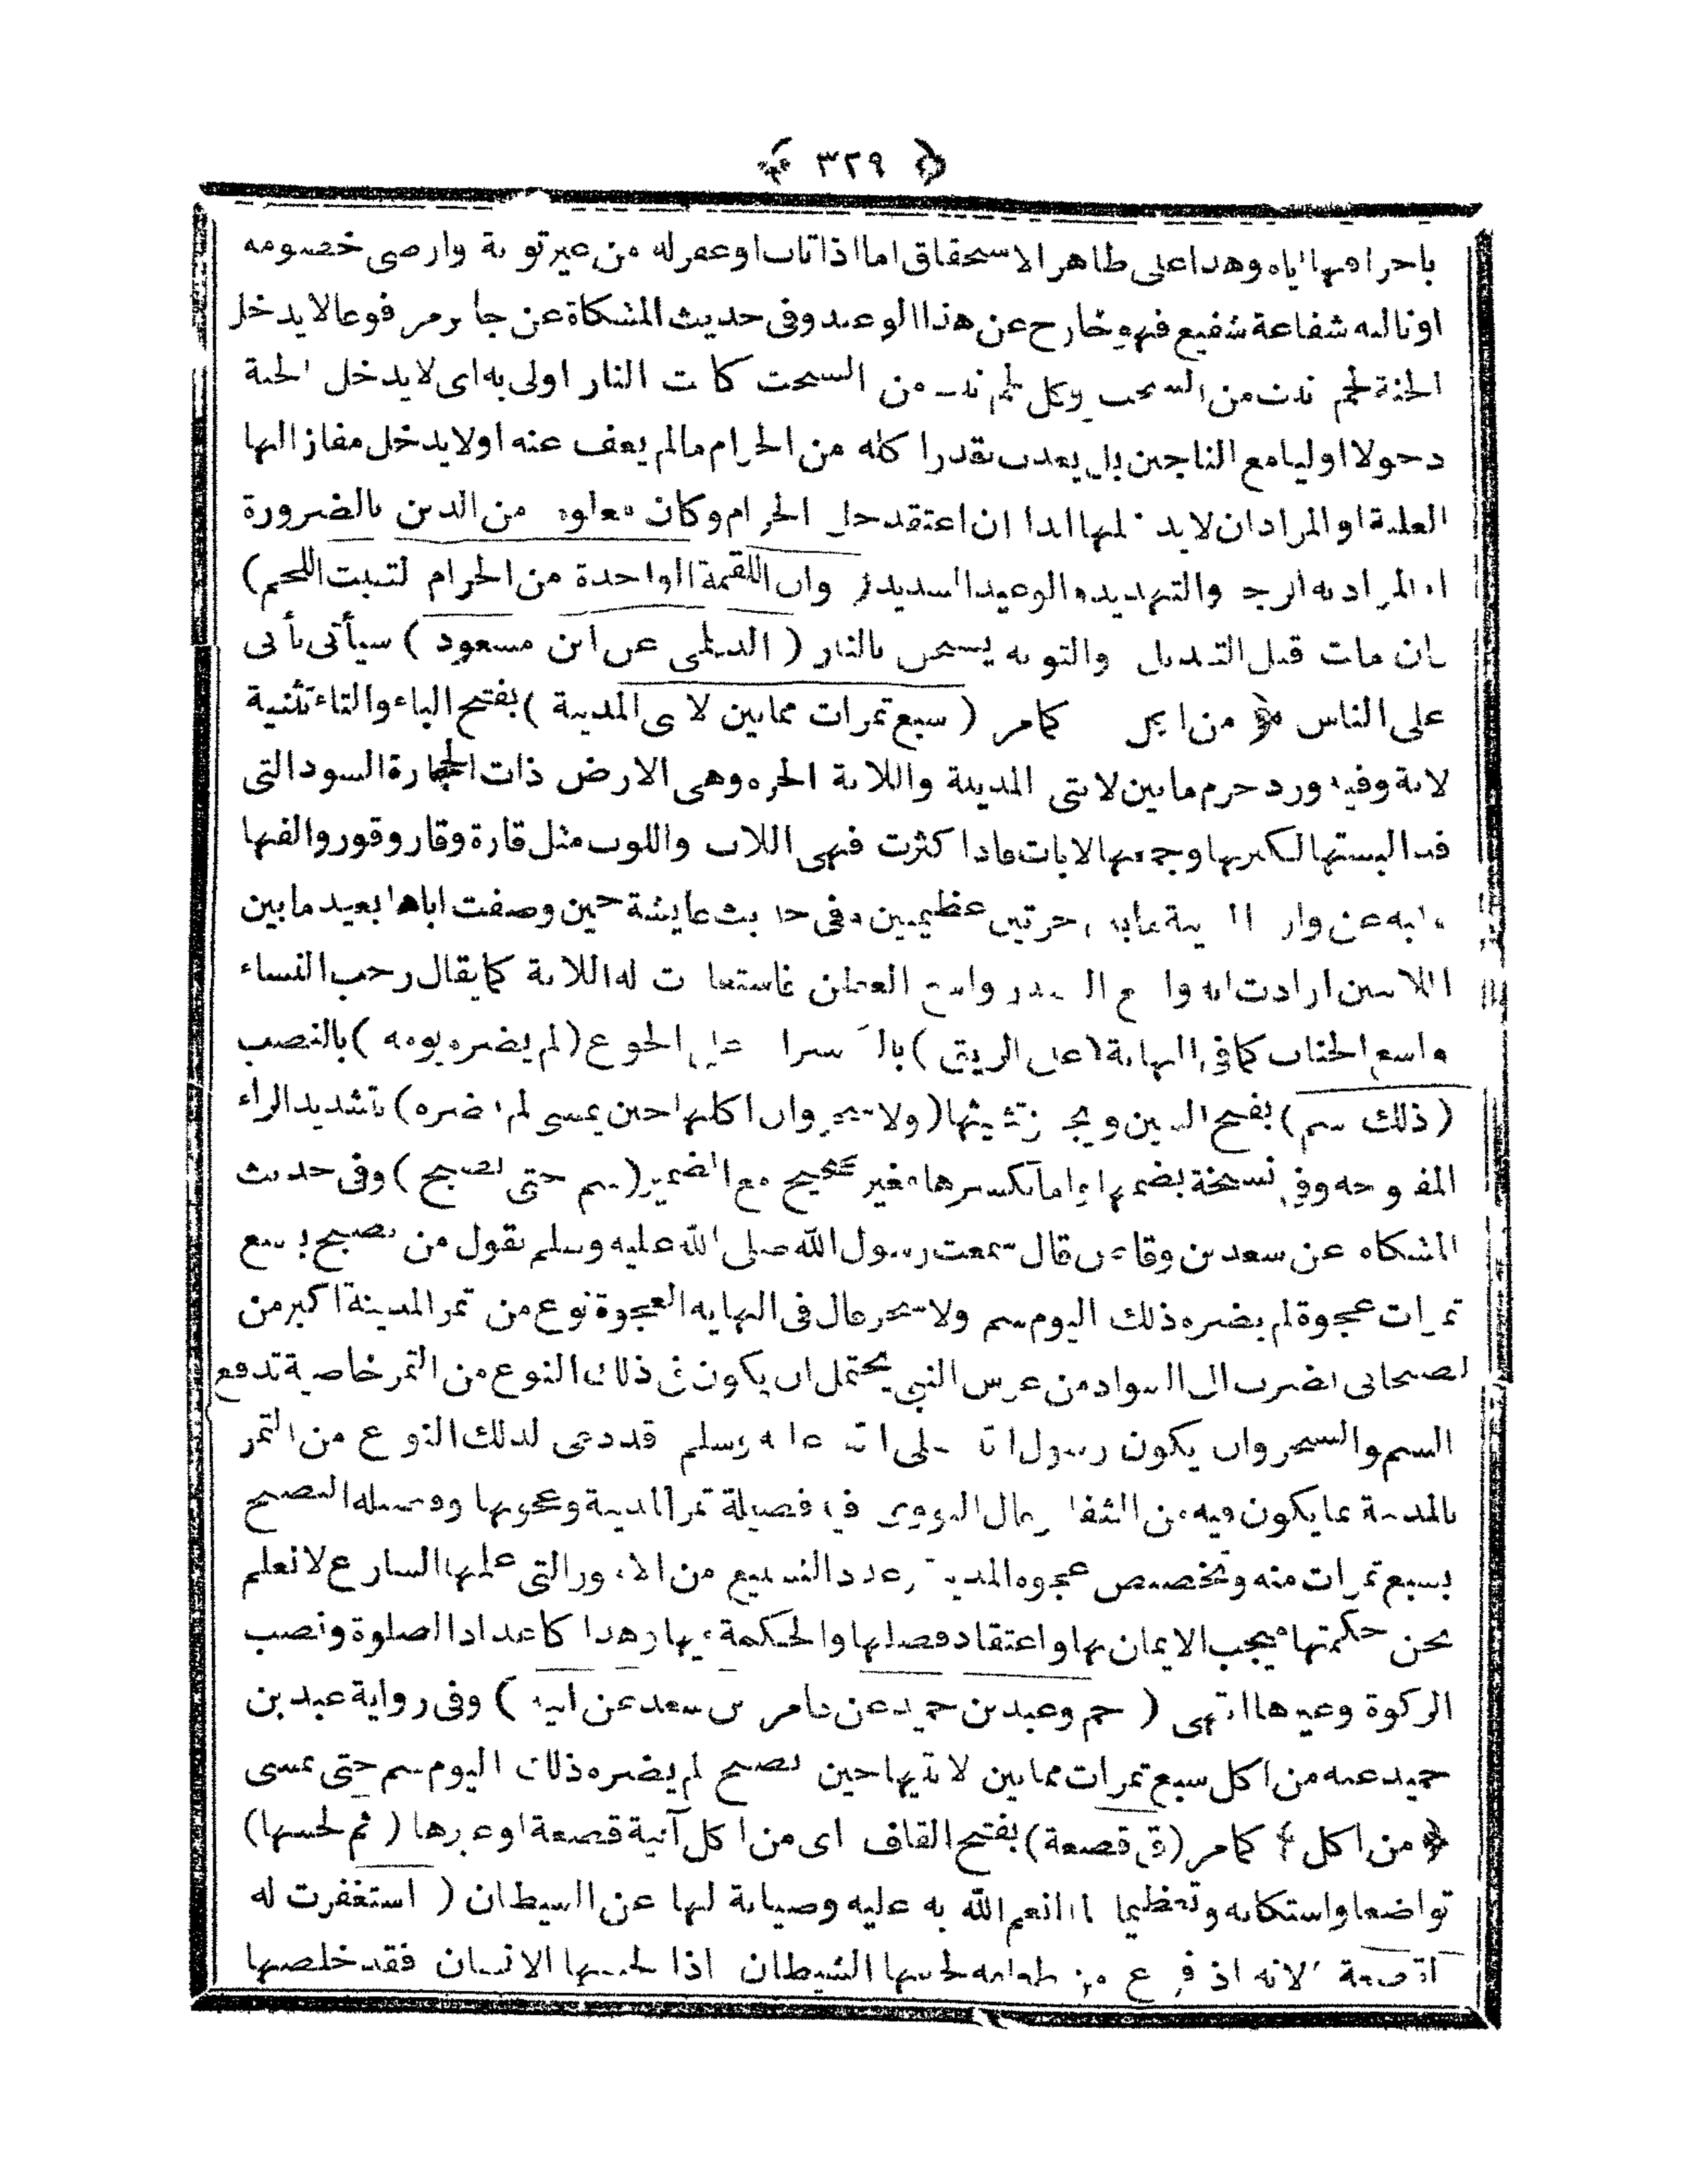 ﴿ ٣٢٩ ﴾
باحراقها اياه وهذا على ظاهر الاستحقاق اما اذا تاب او غفر له من غير توبة وارضى خصومه
او نالته شفاعة شفيع فهو خارج عن هذا الوعيد وفى حديث المشكاة عن جابر مرفوعا لا يدخل
الجنة لحم نبت من السحت وكل لحم نبت من السحت كانت النار اولى به اى لا يدخل الجنة
دخولا اوليا مع الناجين بل يعذب بقدر اكله من الحرام مالم يعف عنه اولا يدخل مفازاتها
العلية او المراد ان لا يدخلها ابدا ان اعتقد حل الحرام وكان معلوم من الدين بالضرورة
او المراد به الزجر والتهديد والوعيد الشديد (وان اللقمة الواحدة من الحرام لتنبت اللحم)
بان مات قبل التبديل والتوبه يستحق بالنار ( الديلمى عن ابن مسعود ) سيأتى يأتى
على الناس ﴿ من اكل ﴾ كمامر ( سبع تمرات مما بين لابتى المدينة ) بفتح الباء والتاء تثنية
لابة وفيه ورد حرم ما بين لابتى المدينة واللابة الحره وهى الارض ذات الحجارة السود التى
قد البستها لكثرتها وجمعها لابات فاذا كثرت فهى اللاب واللوب مثل قارة وقار وقور والفها
منقلبه عن واو المدينة مابين حرتين عظيمين وفى حديث عايشة حين وصفت اباها بعيد ما بين
اللابتين ارادت انه واسع الصدر واسع العطن فاستعارت له اللابة كما يقال رحب الفناء
واسع الجناب كما فى النهاية (على الريق) بالكسر اى على الجوع (لم يضره يومه) بالنصب
(ذلك سم) بفتح السين ويجوز تثليثها (ولا سحر وان اكلها حين يمسى لم يضره) بتشديد الراء
المفتوحه وفى نسخة بضمها واما بكسرها فغير صحيح مع الضمير (سم حتى يصبح) وفى حديث
المشكاه عن سعد بن وقاص قال سمعت رسول الله صلى الله عليه وسلم يقول من تصبح بسبع
تمرات عجوة لم يضره ذلك اليوم سم ولا سحر قال فى النهايه العجوة نوع من تمر المدينة اكبر من
الصيحانى يضرب الى السواد من غرس النبى يحتمل ان يكون فى ذلك النوع من التمر خاصية تدفع
السم والسحر وان يكون رسول الله صلى الله عليه وسلم قد دعى لذلك النوع من التمر
بالمدينة بما يكون فيه من الشفا وقال النووى فيه فضيلة تمر المدينة وعجوتها وفضيلة التصبح
بسبع تمرات منه وتخصيص عجوه المدينة وعدد السبع من الامور التى علمها الشارع لا نعلم
نحن حكمتها فيجب الايمان بها واعتقاد فضلها والحكمة فيها وهذا كاعداد الصلوة ونصب
الزكوة وغيرها انتهى ( حم وعبد بن حميد عن عامر بن سعد عن ابيه ) وفى رواية عبد بن
حميد عنه من اكل سبع تمرات مما بين لابتيها حين يصبح لم يضره ذلك اليوم سم حتى يمسى
﴿ من اكل ﴾ كمامر (فى قصعة) بفتح القاف اى من اكل آنية قصعة او غيرها ( ثم لحسها)
تواضعا واستكانه وتعظيما لما انعم الله به عليه وصيانة لها عن الشيطان ( استغفرت له
القصعة لانه اذا فرغ من طعامه لحسها الشيطان اذا لحسها الانسان فقد خلصها